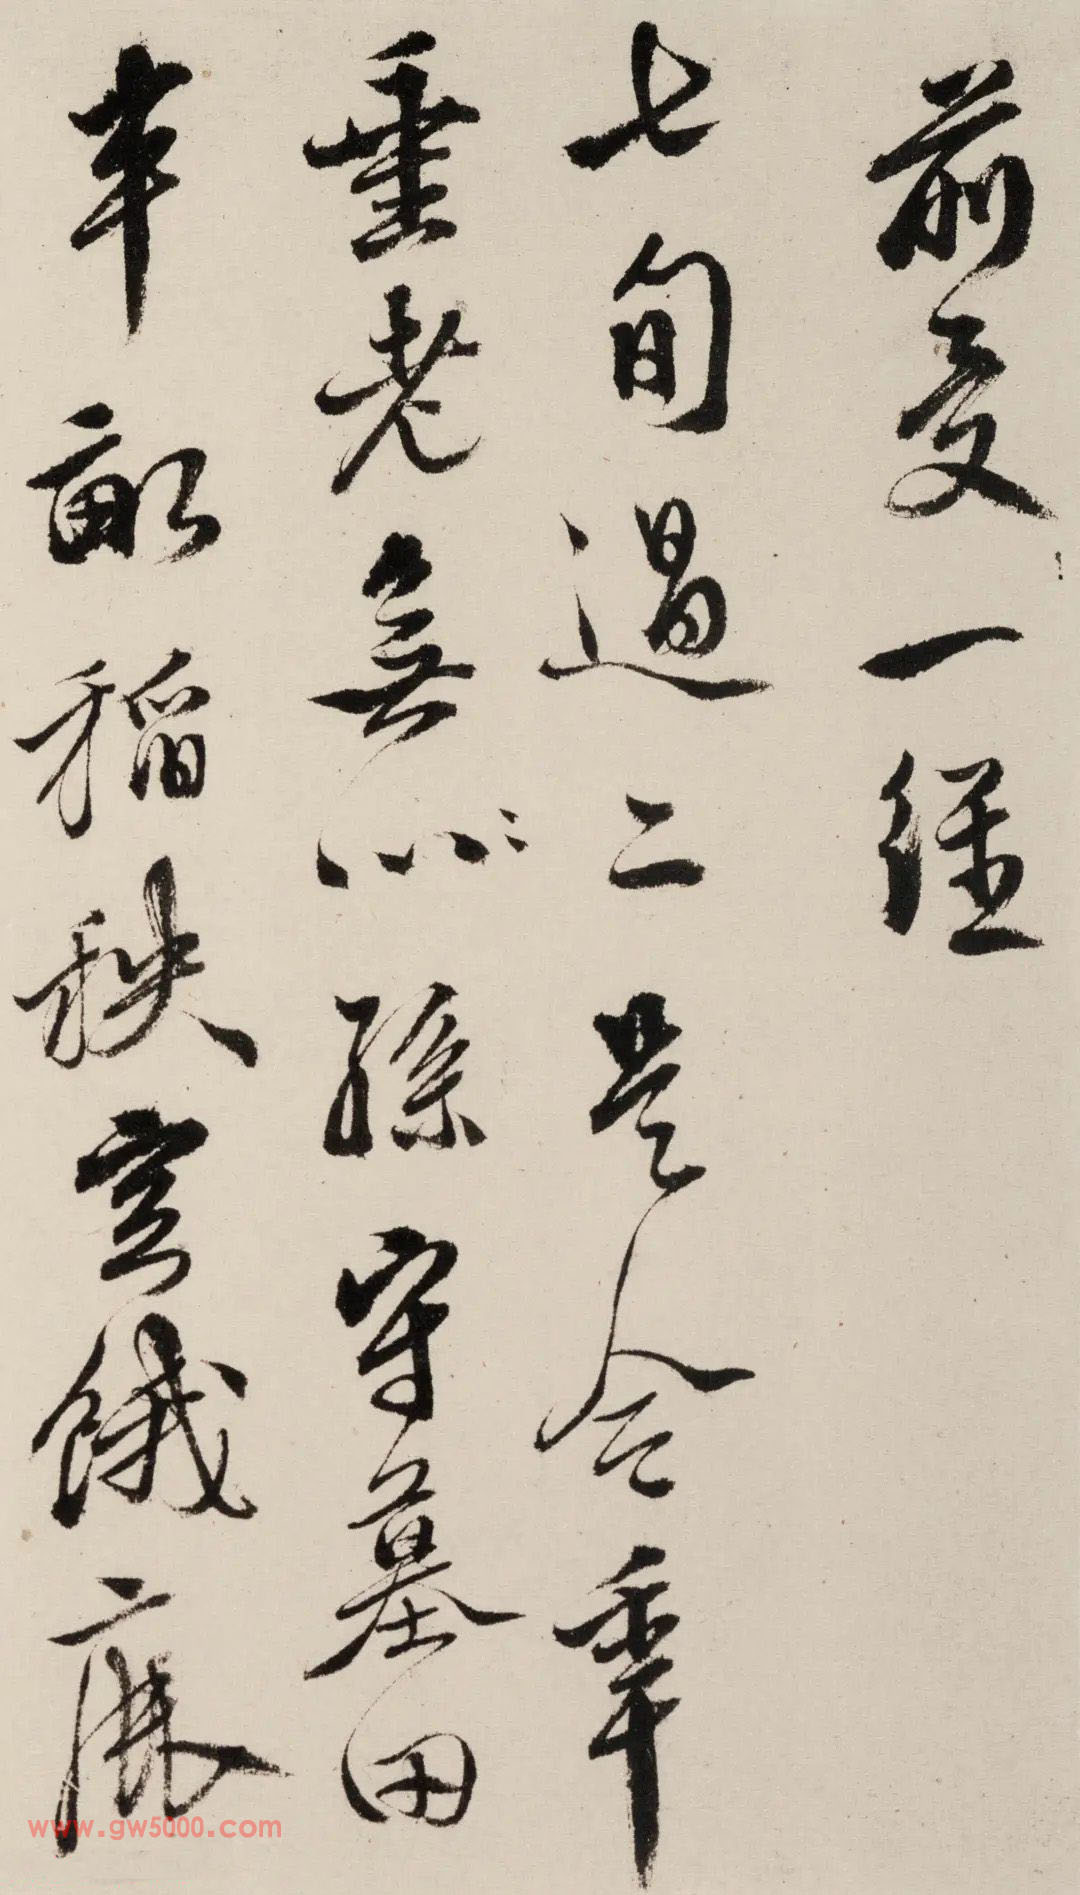 前受一經
七旬過二是今年
垂老無心孫守墓田
半畝稻秧空餓
www.gw5000.com